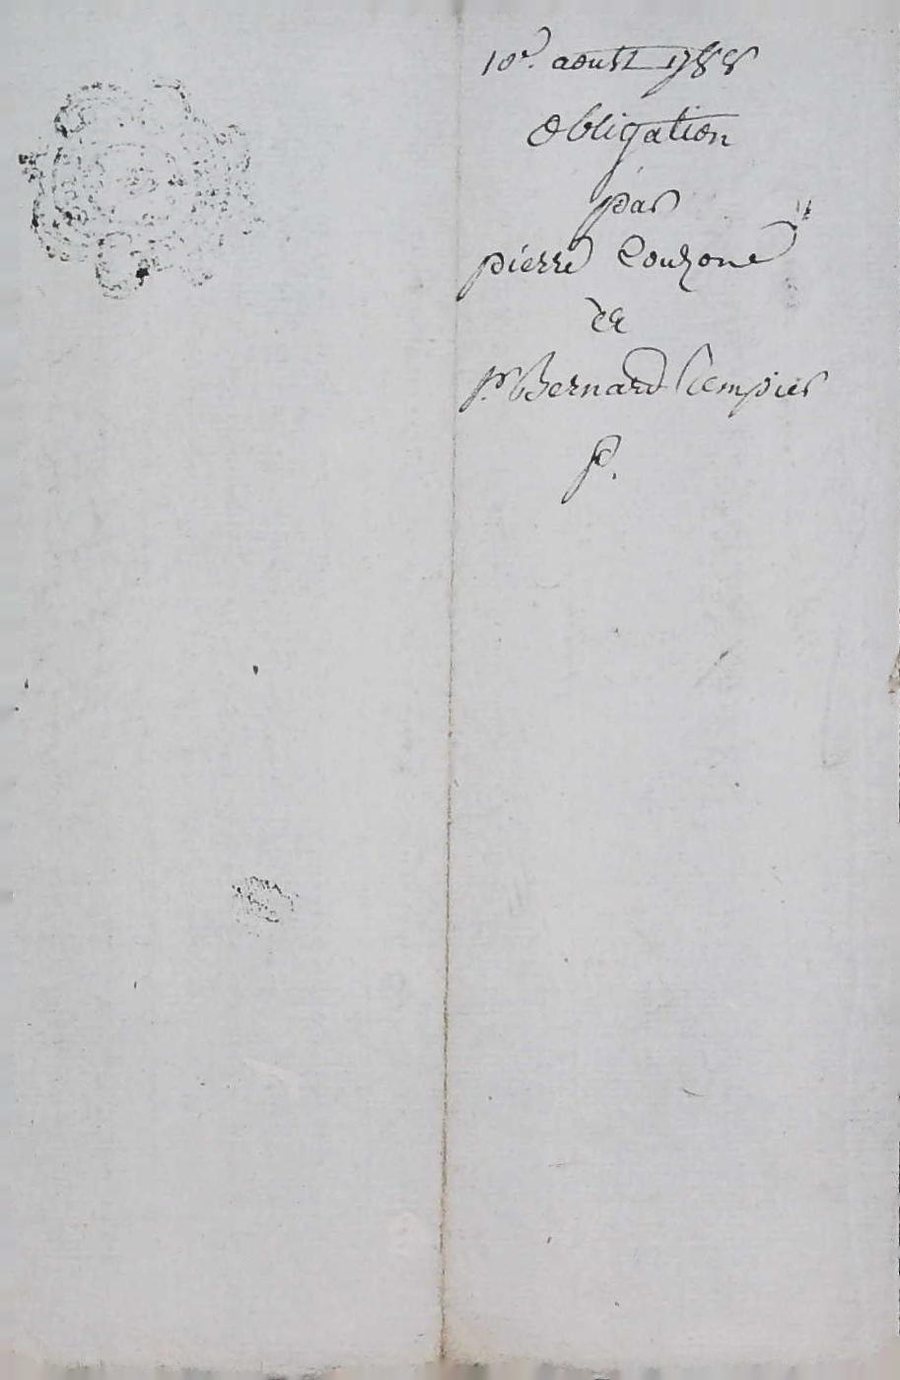 10e. aoust 1788
obligation
par
pierre Couzone
de
Sr. Bernard Tempier
P.